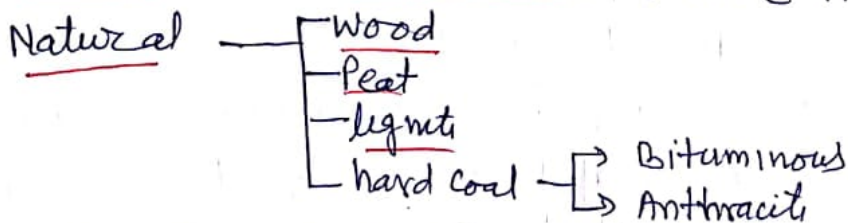 Natural
Wood
Peat
legnite
hard coal
Bituminous
Anthracite